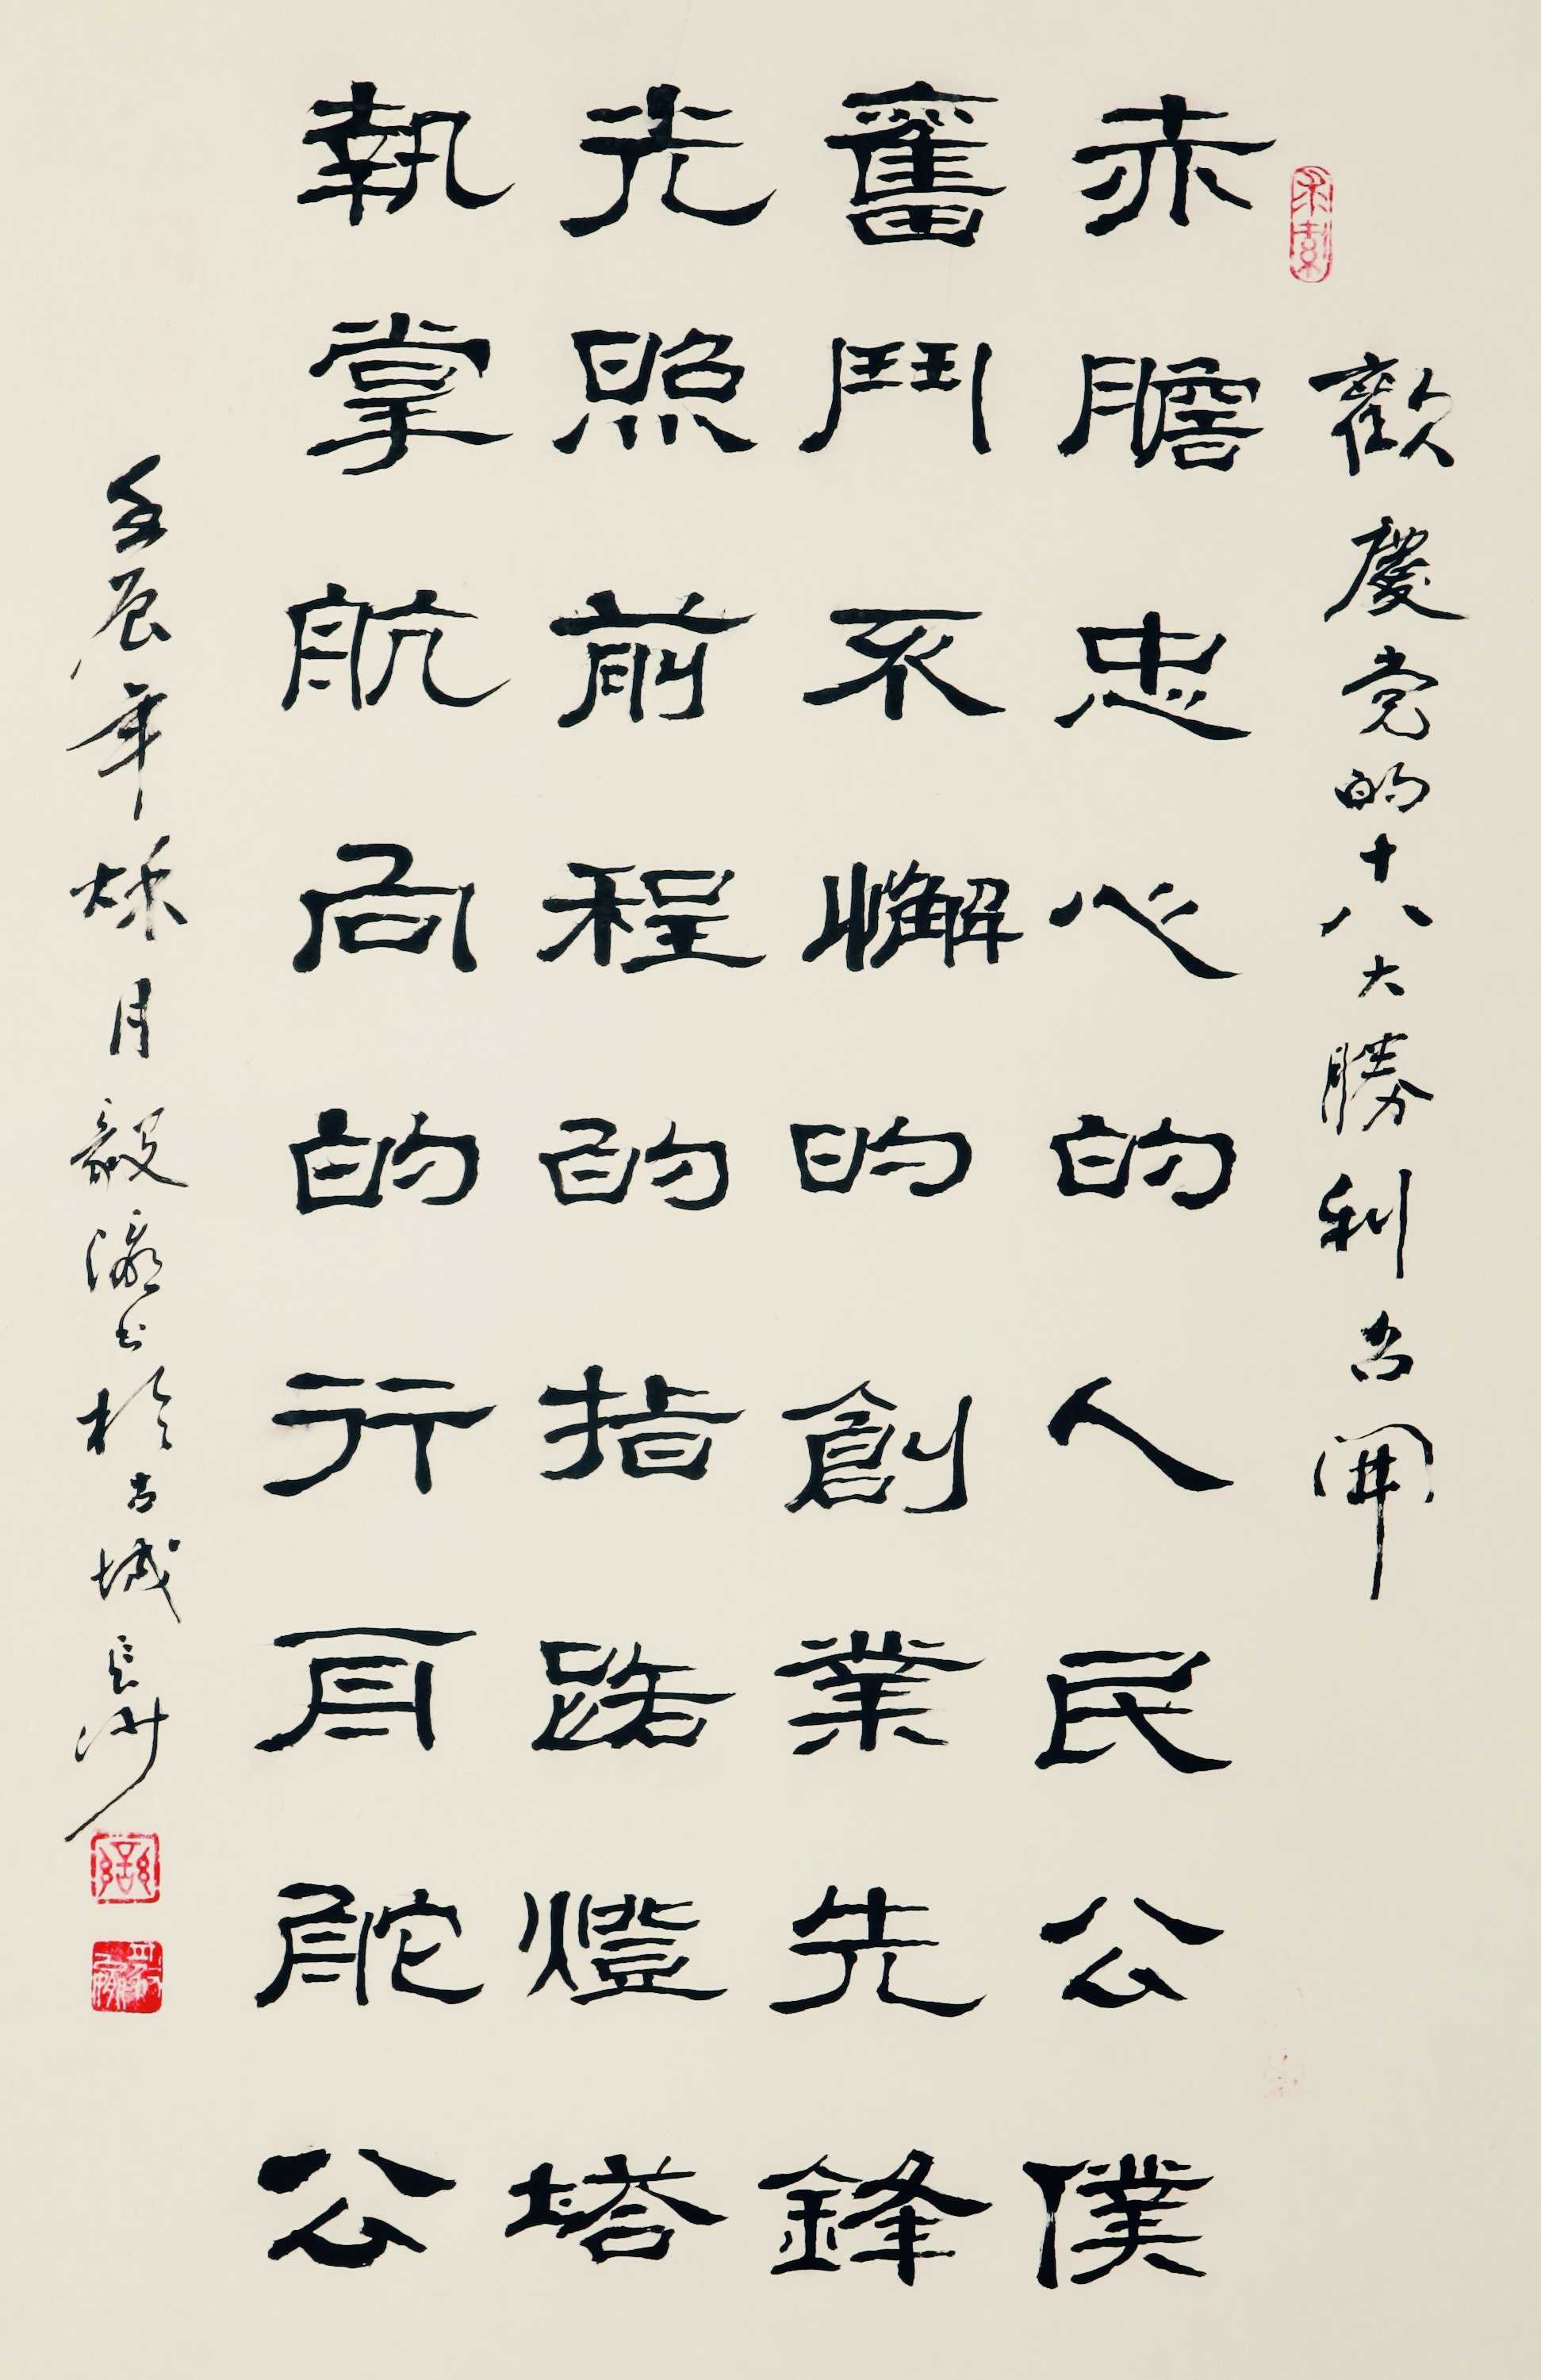 歡慶党的十八大勝利召開
赤膽忠心的人民公僕
奮鬥不懈的創業先鋒
光照前程的指路燈塔
執掌航向的行有舵公
壬辰年秌月毅瀛书於古城長沙